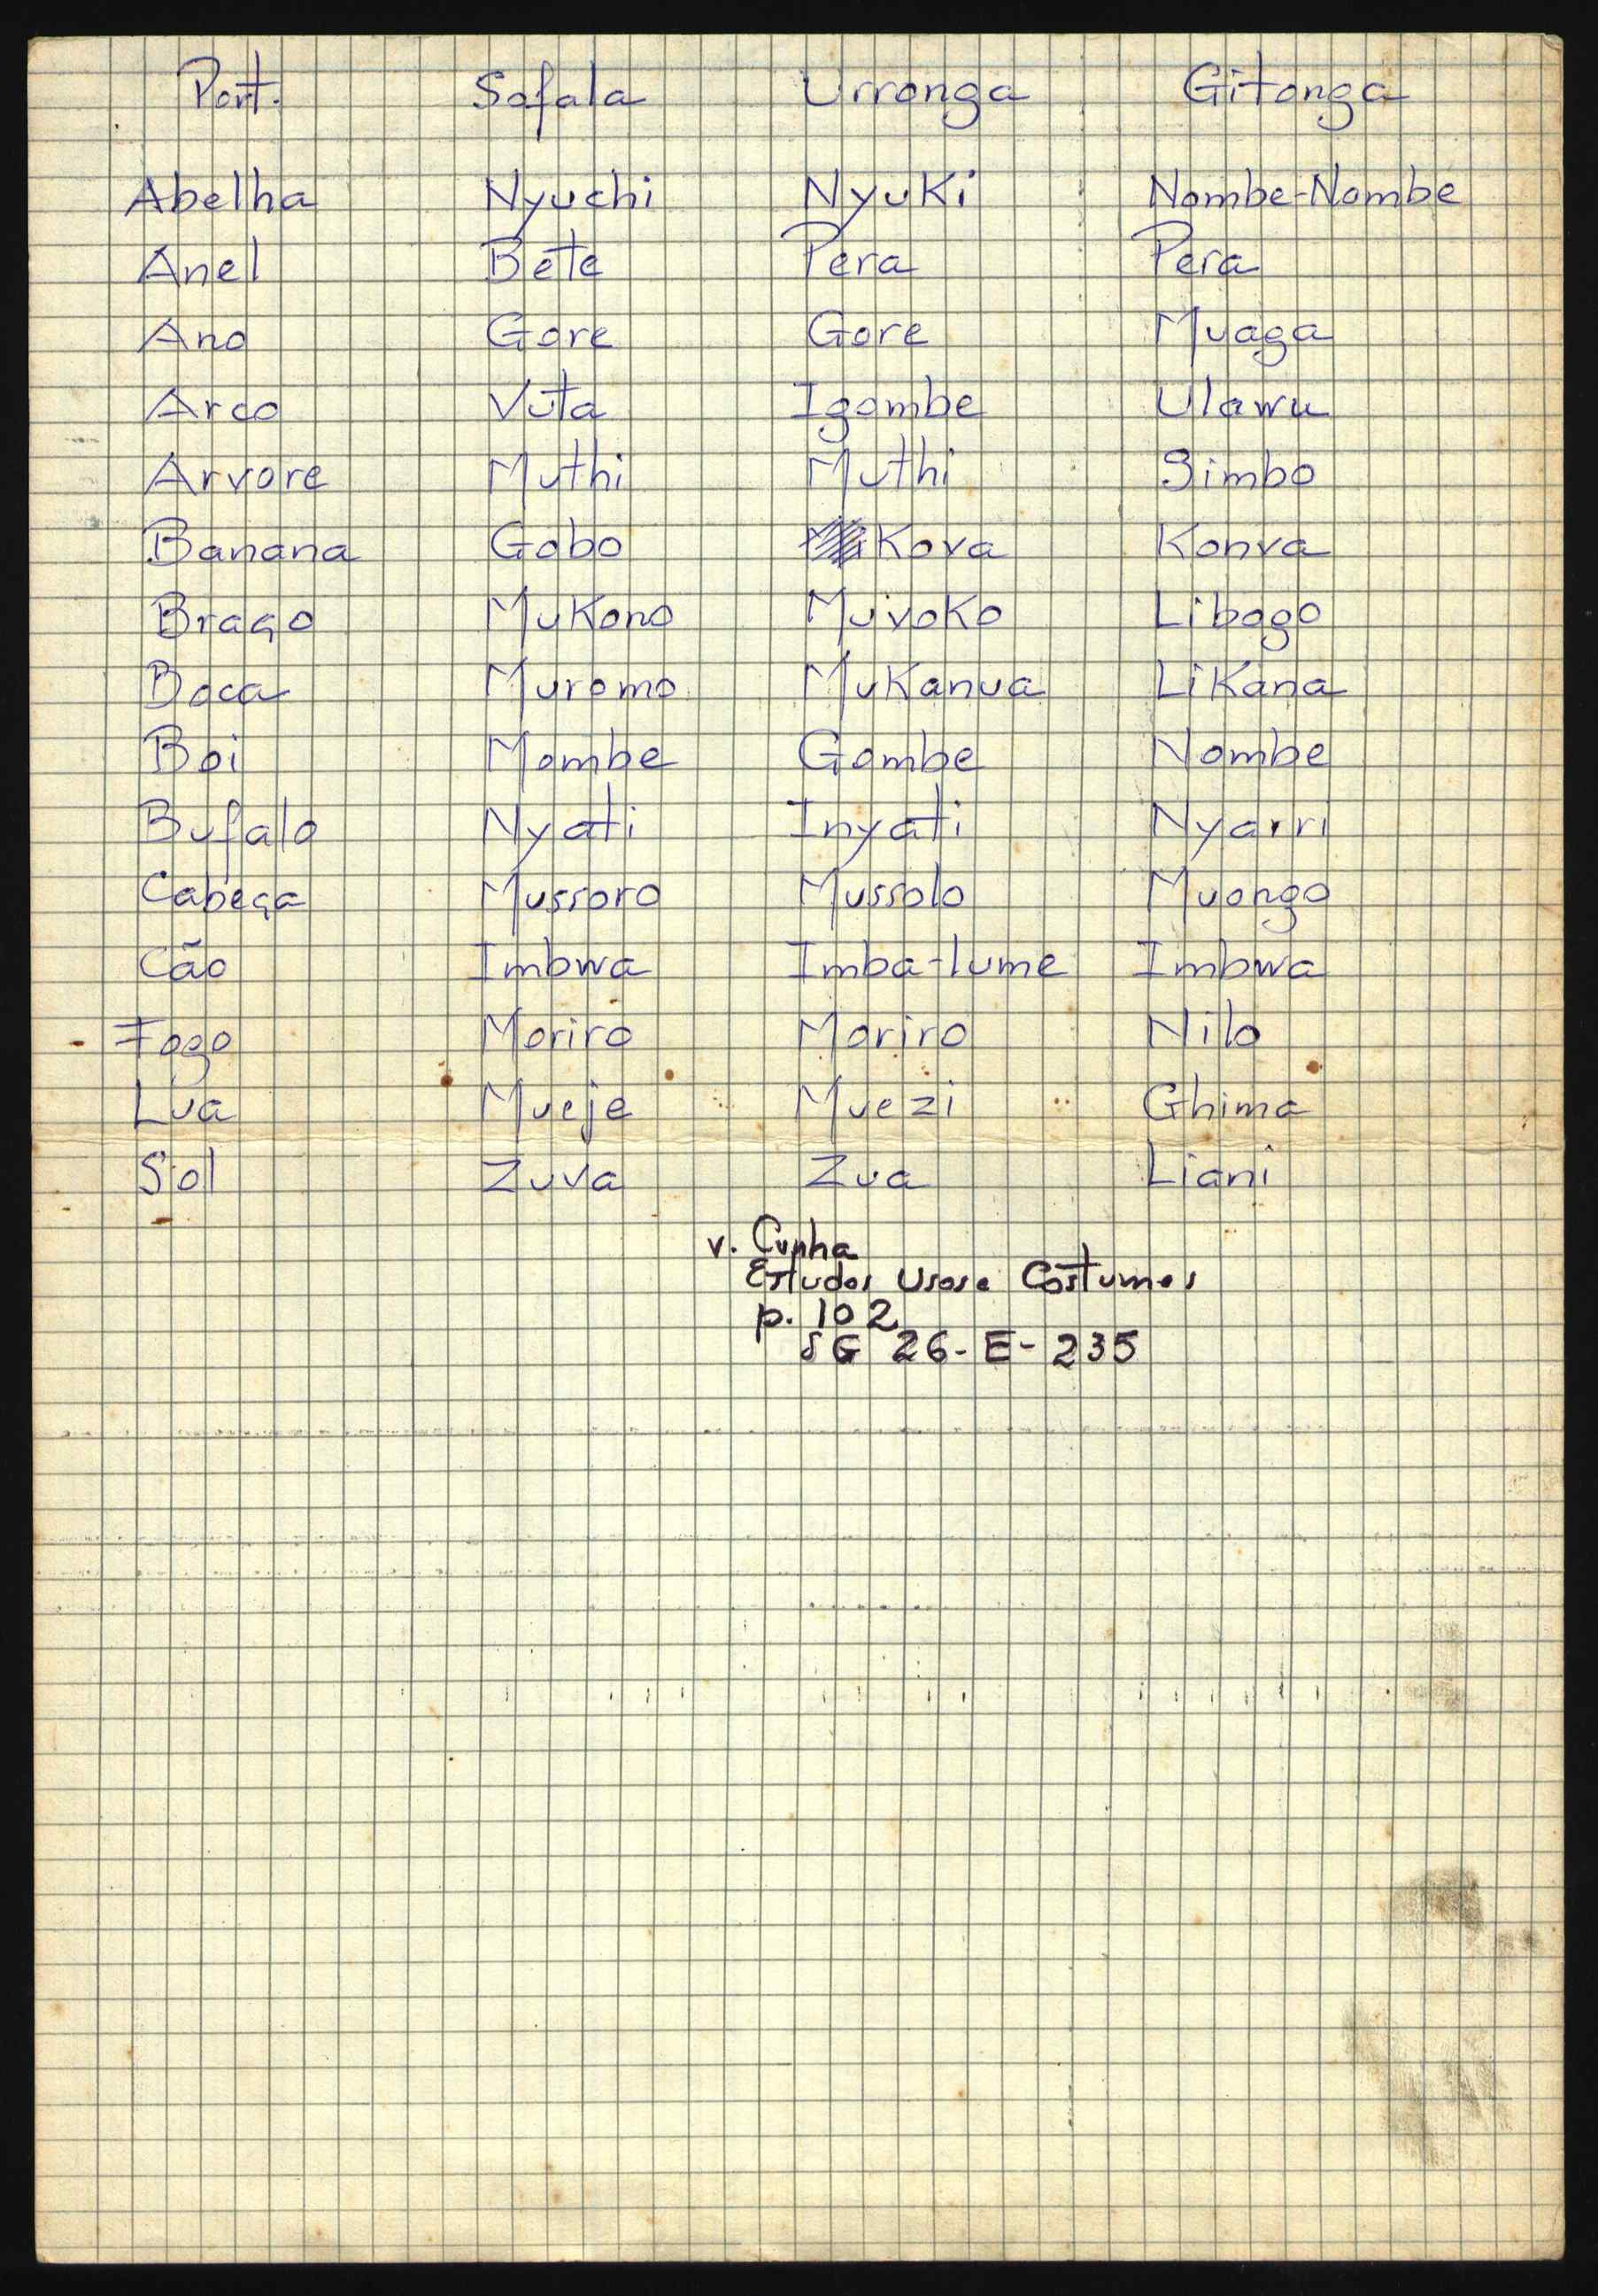 Port. Sofala Urronga Gitonga
Abelha Nyuchi Nyuki Nombe-Nombe
Anel Bete Pera Pera
Ano Gore Gore Muaga
Arco Vuta Igombe Ulawu
Arvore Muthi Muthi Simbo
Banana Gobo Kova Konva
Braço Mukono Muvoko Libogo
Boca Muromo Mukanua Likana
Boi Mombe Gombe Nombe
Bufalo Nyati Inyati Nyarri
Cabeça Mussoro Mussolo Muongo
Cão Imbwa Imba-lume Imbwa
Fogo Moriro Moriro Nilo
Lua Mueje Muezi Ghima
Sol Zuva Zua Liani
v. Cunha
Estudos Usos e Costumes
p. 102
SG 26-E-235